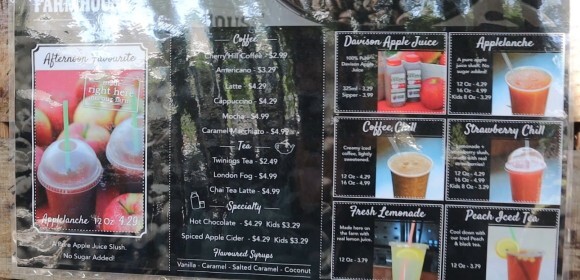 FARMHOUSE
HOUSE
Afternoon Favourite
right here
Applelanche 12 Oz 4.29
Pure Apple Juice Slush.
No Sugar Added!
Coffee
Cherry Hill Coffee - $2.99
Americano - $3.29
Latte - $4.29
Cappuccino - $4.29
Mocha - $4.99
Caramel Macchiato - $4.99
Tea
Twinings Tea - $2.49
London Fog - $4.99
Chai Tea Latte - $4.99
Specialty
Hot Chocolate - $4.29 Kids $3.29
Spiced Apple Cider - $4.29 Kids $3.29
Flavoured Syrups
Vanilla - Caramel - Salted Caramel - Coconut
Davison Apple Juice
100% Pure
Davison Apple
Juice
325ml - 3.29
Sipper - 3.99
Applelanche
A pure apple
juice slush. No
sugar added!
12 Oz - 4.29
16 Oz - 4.99
Kids 8 Oz - 3.29
Coffee Chill
Creamy iced
coffee, lightly
sweetened.
12 Oz - 4.29
16 Oz - 4.99
Strawberry Chill
Lemonade +
strawberry slush,
made with real
12 Oz - 4.29
16 Oz - 4.99
Kids 8 Oz - 3.29
Fresh Lemonade
Made here on
the farm with
real lemon juice.
12 Oz - 3.79
Peach Iced Tea
Cool down with
our Iced Peach
& black tea.
12 Oz - 3.79